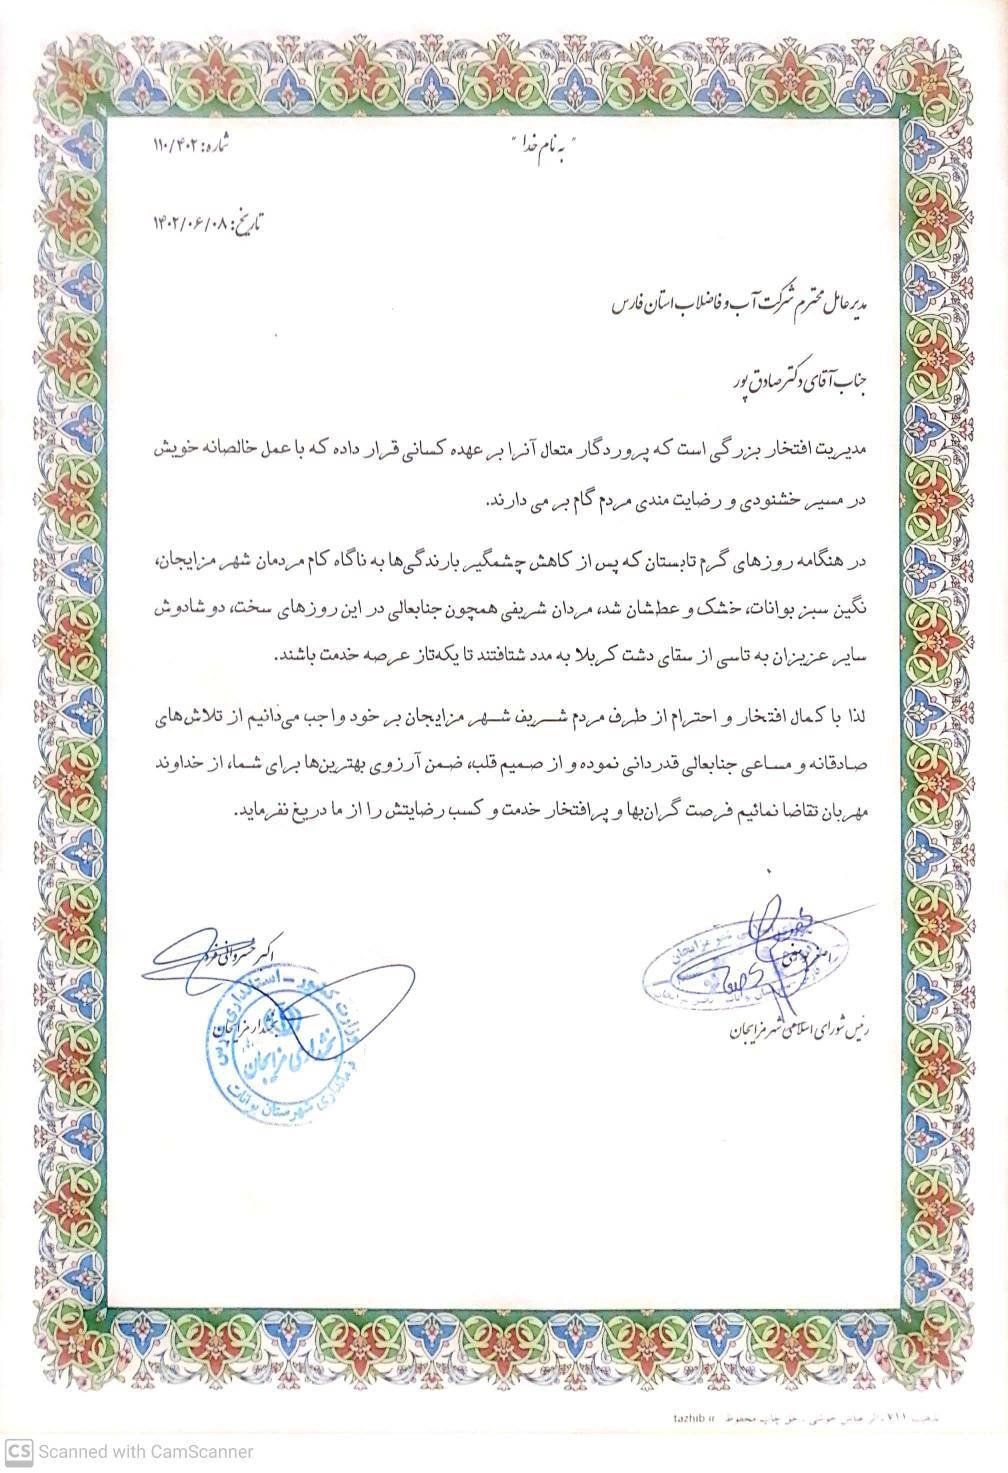 " به نام خدا "
شماره: ۱۱۰/۴۰۲
تاریخ: ۱۴۰۲/۰۶/۰۸
مدیرعامل محترم شرکت آب و فاضلاب استان فارس
جناب آقای دکتر صادق پور
مدیریت افتخار بزرگی است که پروردگار متعال آنرا بر عهده کسانی قرار داده که با عمل خالصانه خویش
در مسیر خشنودی و رضایت مندی مردم گام بر می دارند.
در هنگامه روزهای گرم تابستان که پس از کاهش چشمگیر بارندگی‌ها به ناگاه کام مردمان شهر مزایجان،
نگین سبز بوانات، خشک و عطشان شد، مردان شریفی همچون جنابعالی در این روزهای سخت، دوشادوش
سایر عزیزان به تاسی از سقای دشت کربلا به مدد شتافتند تا یکه‌تاز عرصه خدمت باشند.
لذا با کمال افتخار و احترام از طرف مردم شریف شهر مزایجان بر خود واجب می‌دانیم از تلاش‌های
صادقانه و مساعی جنابعالی قدردانی نموده و از صمیم قلب، ضمن آرزوی بهترین‌ها برای شما، از خداوند
مهربان تقاضا نمائیم فرصت گران‌بها و پرافتخار خدمت و کسب رضایتش را از ما دریغ نفرماید.
رئیس شورای اسلامی شهر مزایجان
اکبر خسروانی فرد
بخشدار مزایجان
وزارت کشور - استانداری فارس
بخشداری مزایجان
فرمانداری شهرستان بوانات
tazhib.ir
CS Scanned with CamScanner